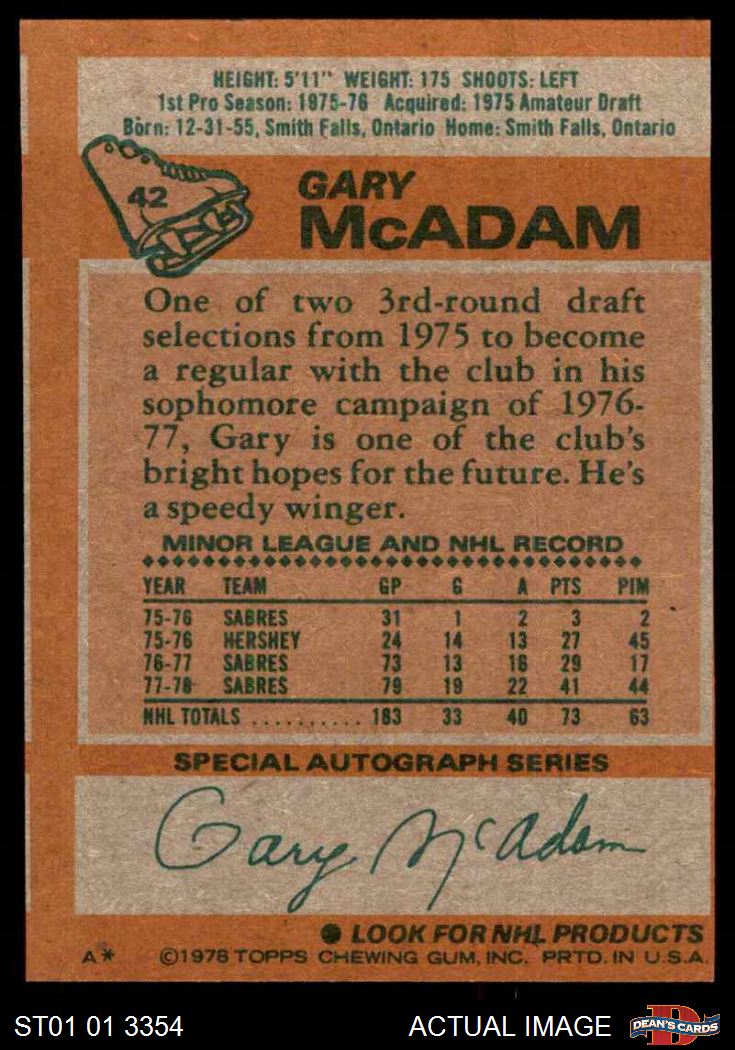 HEIGHT: 5'11" WEIGHT: 175 SHOOTS: LEFT
1st Pro Season: 1975-76 Acquired: 1975 Amateur Draft
Born: 12-31-55, Smith Falls, Ontario Home: Smith Falls, Ontario
42
GARY
McADAM
One of two 3rd-round draft
selections from 1975 to become
a regular with the club in his
sophomore campaign of 1976-
77, Gary is one of the club's
bright hopes for the future. He's
a speedy winger.
MINOR LEAGUE AND NHL RECORD
YEAR TEAM GP G A PTS PIM
75-76 SABRES 31 1 2 3 2
75-76 HERSHEY 24 14 13 27 45
76-77 SABRES 73 13 16 29 17
77-78 SABRES 79 19 22 41 44
NHL TOTALS .......... 183 33 40 73 63
SPECIAL AUTOGRAPH SERIES
Gary McAdam
LOOK FOR NHL PRODUCTS
A* ©1978 TOPPS CHEWING GUM, INC. PRTD. IN U.S.A.
ST01 01 3354 ACTUAL IMAGE D DEAN'S CARDS